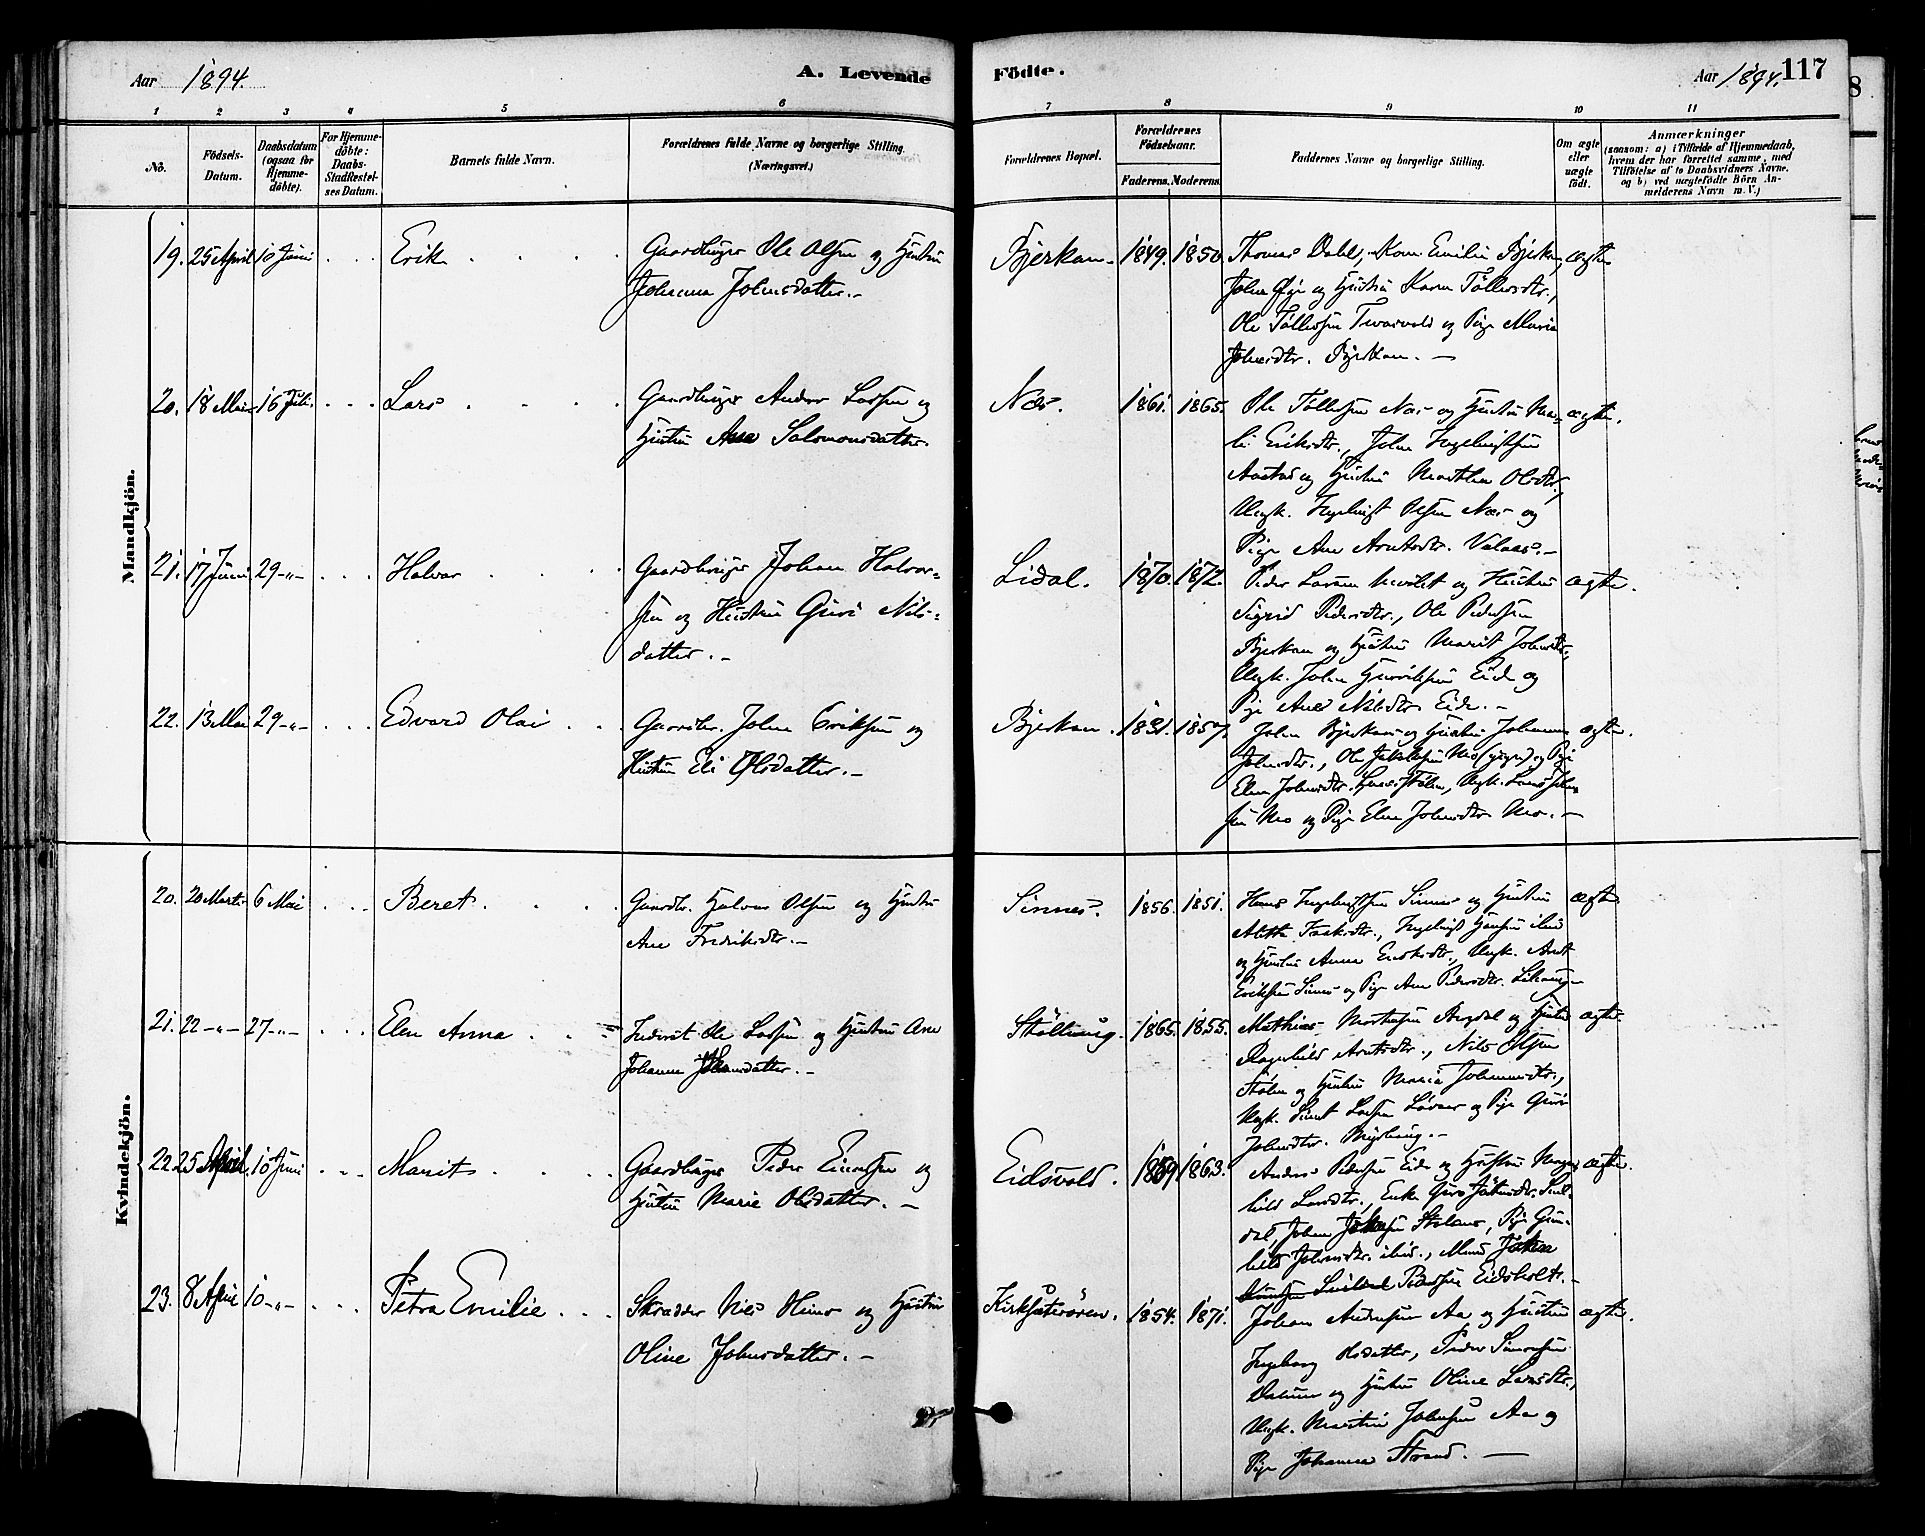 Aar 1894.
A. Levende
Födte.
Aar 1894. 117
1 2 3 4 5 6 7 8 9 10 11
No.
Födsels-
Datum.
Daabsdatum
(ogsaa for
Hjemme-
döbte).
For Hjemme-
döbte:
Daabs-
Stadfæstel-
ses Datum.
Barnets fulde Navn.
Forældrenes fulde Navne og borgerlige Stilling.
(Næringsvei.)
Forældrenes Bopæl.
Forældrenes
Födselsaar.
Faderens. Moderens.
Faddernes Navne og borgerlige Stilling.
Om ægte
eller
uægte
födt.
Anmærkninger
(saasom: a) i Tilfælde af Hjemmedaab,
hvem der har forrettet samme, med
Tilföielse af to Daabsvidners Navne,
og b) ved uægtefödte Börn An-
melderens Navn m. V.)
Mandkjön.
19. 25 April 10 Juni . . . Erik
Gaardbruger Ole Olsen og Hustru
Johanna Johnsdatter.-
Bjerkan. 1849. 1850.
Thomas Dahl, Kone Emilie Bjerkan, ægte
John Øye og Hustru Karen Tøllersdtr.,
Ole Tøllefsen og Pige Maria
Johnsdtr. Bjerkan. -
20. 18 Mai 16 Juli . . . Lars
Gaardbruger Anders Larsen og
Hustru Ane Salomonsdatter.
Næs. 1861. 1865.
Ole Tøllefsen Næs og Hustru Ma- ægte.
li Eriksdtr., John Ingebrigtsen
Aastad og Hustru Marthe Olsdtr.,
Ungk. Ingebrigt Olsen Næs og
Pige Ane Arntsdtr. Valaas.-
21. 17 Juni 29-"- . . . Halvor
Gaardbruger Johan Halvor-
sen og Hustru Guri Nils-
datter. -
Lidal. 1870. 1872.
Peder Larsen og Hustru ægte.
Sigrid Pedersdtr., Ole Pedersen
Bjerkan og Hustru Marit Johnsdtr.,
Ungk. John Henriksen Eide og
Pige Ane Nilsdtr. Eide. -
22. 13 Mai 29-"- . . . Edvard Olai
Gaardbr. John Eriksen og
Hustru Eli Olsdatter. -
Bjerkan. 1831. 1857.
John Bjerkan og Hustru Johanna ægte.
Johnsdtr., Ole Mo og Pige
Elen Johnsdtr. Ungk. Lars John-
sen Mo og Pige Elen Johnsdtr. Mo. -
Kvindekjön.
20. 20 Marts 6 Mai . . . Beret
Gaardbr. Halvor Olsen og Hustru
Ane Fredriksdtr. -
Sinnes. 1856. 1851.
Hans Ingebrigtsen Sinnes og Hustru ægte
Isaksdtr., Ingebrigt Hansen ibid
og Hustru Anne Eriksdtr., Ungk. Arnt
Eriksen Sinnes og Pige Ane Pedersdtr.
21. 22-"- 27-"- . . . Elen Anna
Inderst Ole Larsen og Hustru Ane
Johanna Johnsdatter. -
1865. 1855.
Mathias Mortensen og Hustru ægte.
Ragnhild Arntsdtr., Nils Olsen
Stølen og Hustru Maria Johannesdtr.,
Ungk. Larsen og Pige Guri
Johnsdtr.
22. 25 April. 10 Juni . . . Marit
Gaardbruger Peder Einarsen og
Hustru Marie Olsdatter. -
Eidsvold. 1859 1863.
Anders Pedersen Eide og Hustru Ragn- ægte.
hild Larsdtr., Enke Guro Johnsdtr.
dal, John Johnsen Pige Gun-
hild Johnsdtr. ibid., Mand John
Eidsholt. -
23. 8 April 10-"- . . . Petra Emilie
Skrædder Nils Hemo og Hustru
Oline Johnsdatter. -
Kirksæterören. 1854. 1871.
Johan Andersen Aa og Hustru ægte.
Ingeborg Olsdatter, Peder Simonsen
Dalum og Hustru Oline Larsdtr.,
Ungk. Martin Johnsen Aa og
Pige Johanna Strand. -